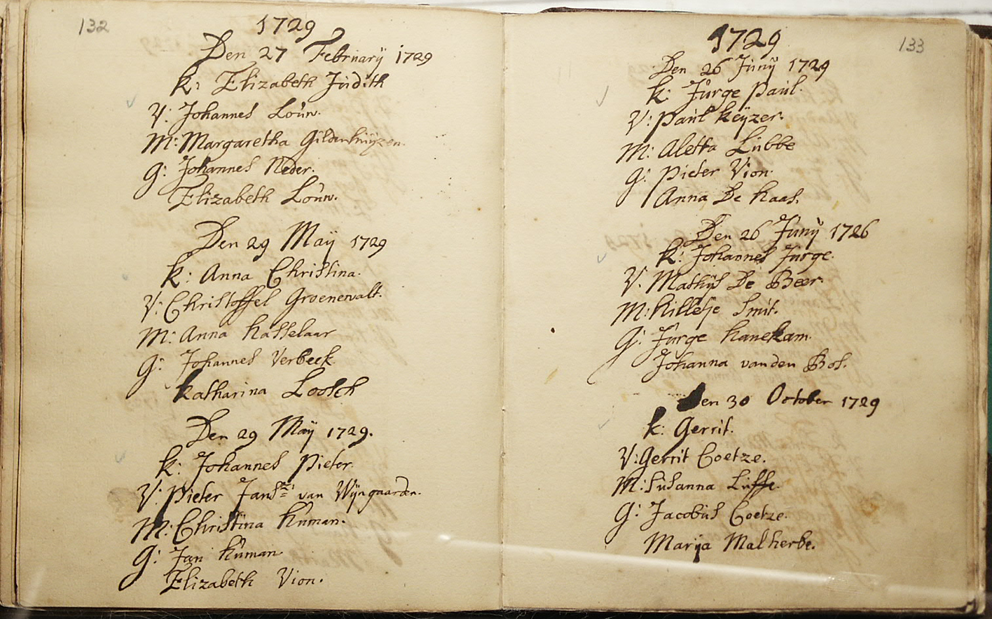 132
1729
Den 27 Februarij 1729
k: Elizabeth Judith
V: Johannes Loúw.
M: Margaretha Gildenhuijzen.
g: Johannes Neder.
Elizabeth Loúw.
Den 29 Maÿ 1729
k: Anna Christina.
V: Christoffel Groenewalt.
M: Anna Hasselaar
g: Johannes Verbeek
Katharina Loosch
Den 29 Maÿ 1729.
k: Johannes Pieter
V: Pieter Jansz: van Wijngaarden.
M: Christina Húman.
g: Jan Húman
Elizabeth Vion.
133
1729
Den 26 Junÿ 1729
k: Júrge Paúl.
V: Paúl Keÿzer.
M: Aletta Lúbbe
g: Pieter Vion.
Anna De Haas.
Den 26 Junÿ 1726
k: Johannes Júrge.
V: Mathÿs De Beer.
M: Hilletje Smit.
G: Júrge Hanekam.
Johanna vanden Bos.
Den 30 October 1729
k: Gerrit.
V: Gerrit Coetze.
M: Súsanna Lúffe.
G: Jacobús Coetze.
Marija Malherbe.